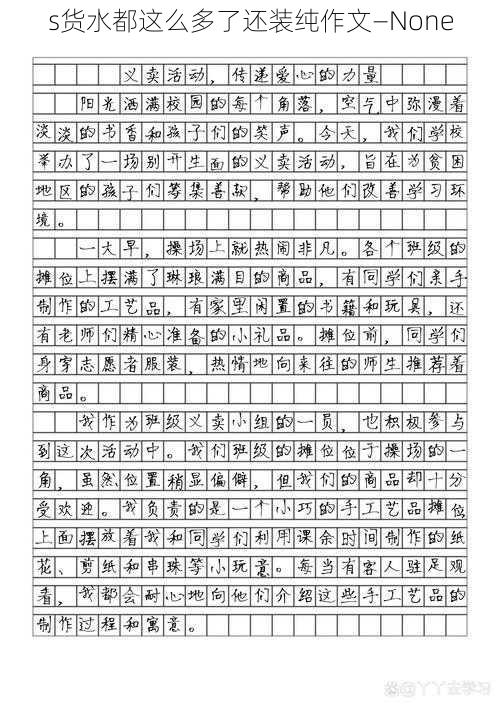 s货水都这么多了还装纯作文–None
义卖活动，传递爱心的力量
阳光洒满校园的每个角落，空气中弥漫着
淡淡的书香和孩子们的笑声。今天，我们学校
举办了一场别开生面的义卖活动，旨在为贫困
地区的孩子们筹集善款，帮助他们改善学习环
境。
一大早，操场上就热闹非凡。各个班级的
摊位上摆满了琳琅满目的商品，有同学们亲手
制作的工艺品，有家里闲置的书籍和玩具，还
有老师们精心准备的小礼品。摊位前，同学们
身穿志愿者服装，热情地向来往的师生推荐着
商品。
我作为班级义卖小组的一员，也积极参与
到这次活动中。我们班级的摊位位于操场的一
角，虽然位置稍显偏僻，但我们的商品却十分
受欢迎。我负责的是一个小巧的手工艺品摊位
上面摆放着我和同学们利用课余时间制作的纸
花、剪纸和串珠等小玩意。每当有客人驻足观
看，我都会耐心地向他们介绍这些手工艺品的
制作过程和寓意。
@丫丫去学习